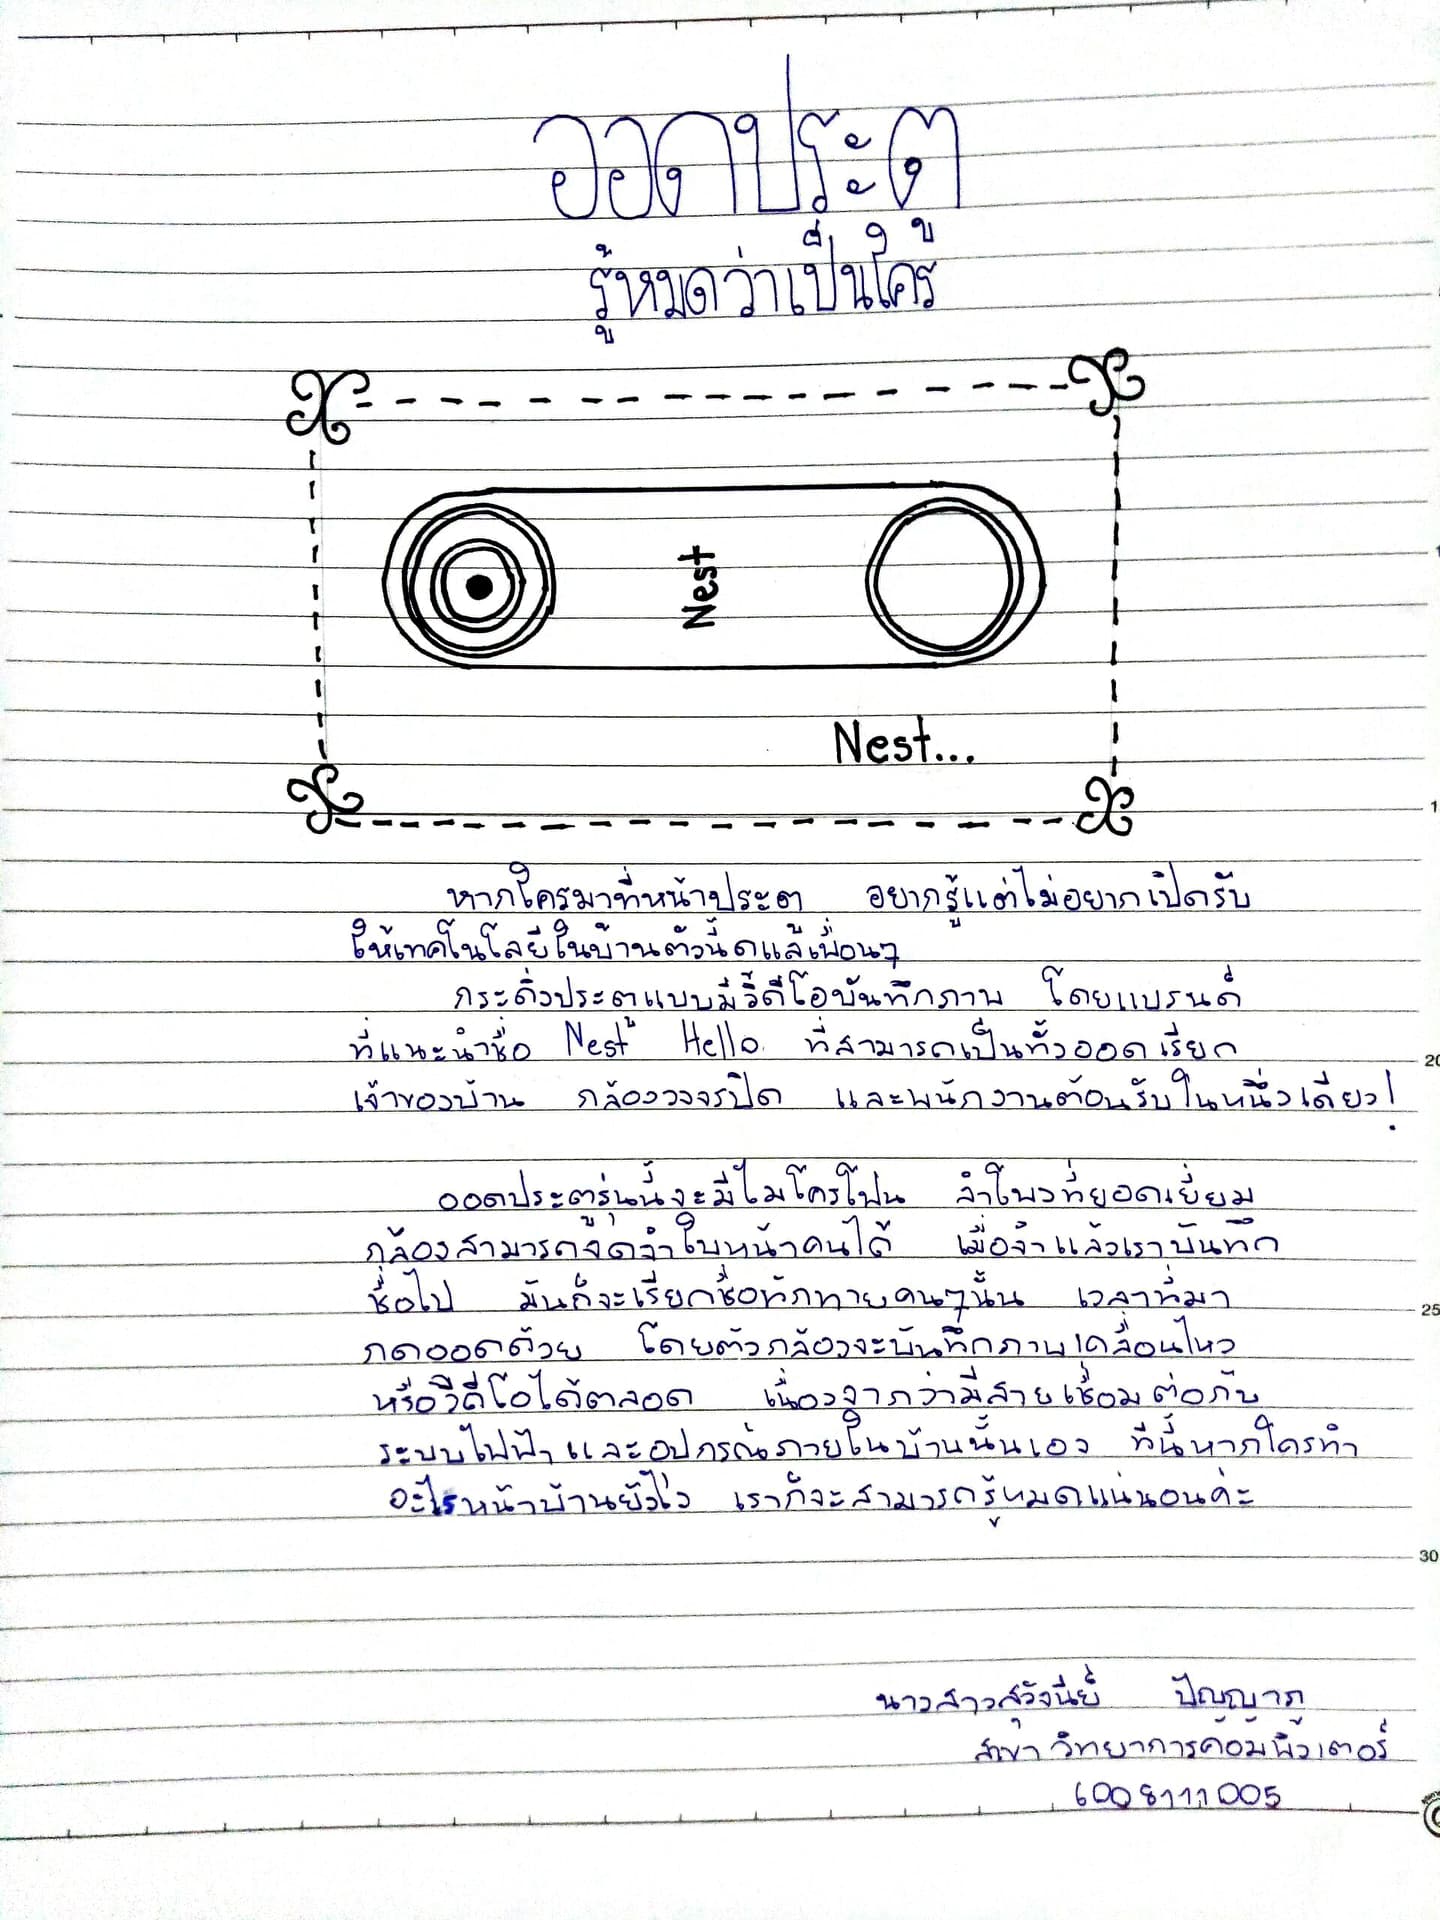 ออดประตู
รู้หมดว่าเป็นใคร
Nest
Nest...
หากใครมาที่หน้าประตู อยากรู้แต่ไม่อยากเปิดรับ
ให้เทคโนโลยีในบ้านตัวนี้ดูแล้เพื่อนๆ
กระดิ่งประตูแบบมีวิ้ดีโอบันทึกภาพ โดยแบรนด์
ที่แนะนำชื่อ Nest Hello ที่สามารถเป็นทั้งออดเรียก
เจ้าของบ้าน กล้องวงจรปิด และพนักงานต้อนรับในหนึ่งเดียว!
ออดประตูรุ่นนี้จะมีไมโครโฟน ลำโพงที่ยอดเยี่ยม
กล้องสามารถจดจำใบหน้าคนได้ เมื่อจำแล้วเราบันทึก
ชื่อไป มันก็จะเรียกชื่อทักทายคนๆนั้น เวลาที่มา
กดออดด้วย โดยตัวกล้องจะบันทึกภาพเคลื่อนไหว
หรือวีดีโอได้ตลอด เนื่องจากว่ามีสายเชื่อมต่อกับ
ระบบไฟฟ้าและอุปกรณ์ภายในบ้านนั้นเอง ทีนี้หากใครทำ
อะไรหน้าบ้านยังไง เราก็จะสามารถรู้หมดแน่นอนค่ะ
นางสาว ปัญญาภู
สาขา วิทยาการค้อมพิ้วเตอร์
6008111005
25
30